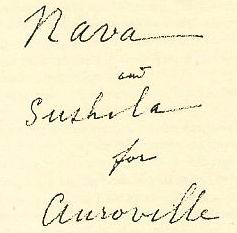 Nava
and
Sushila
for
Auroville